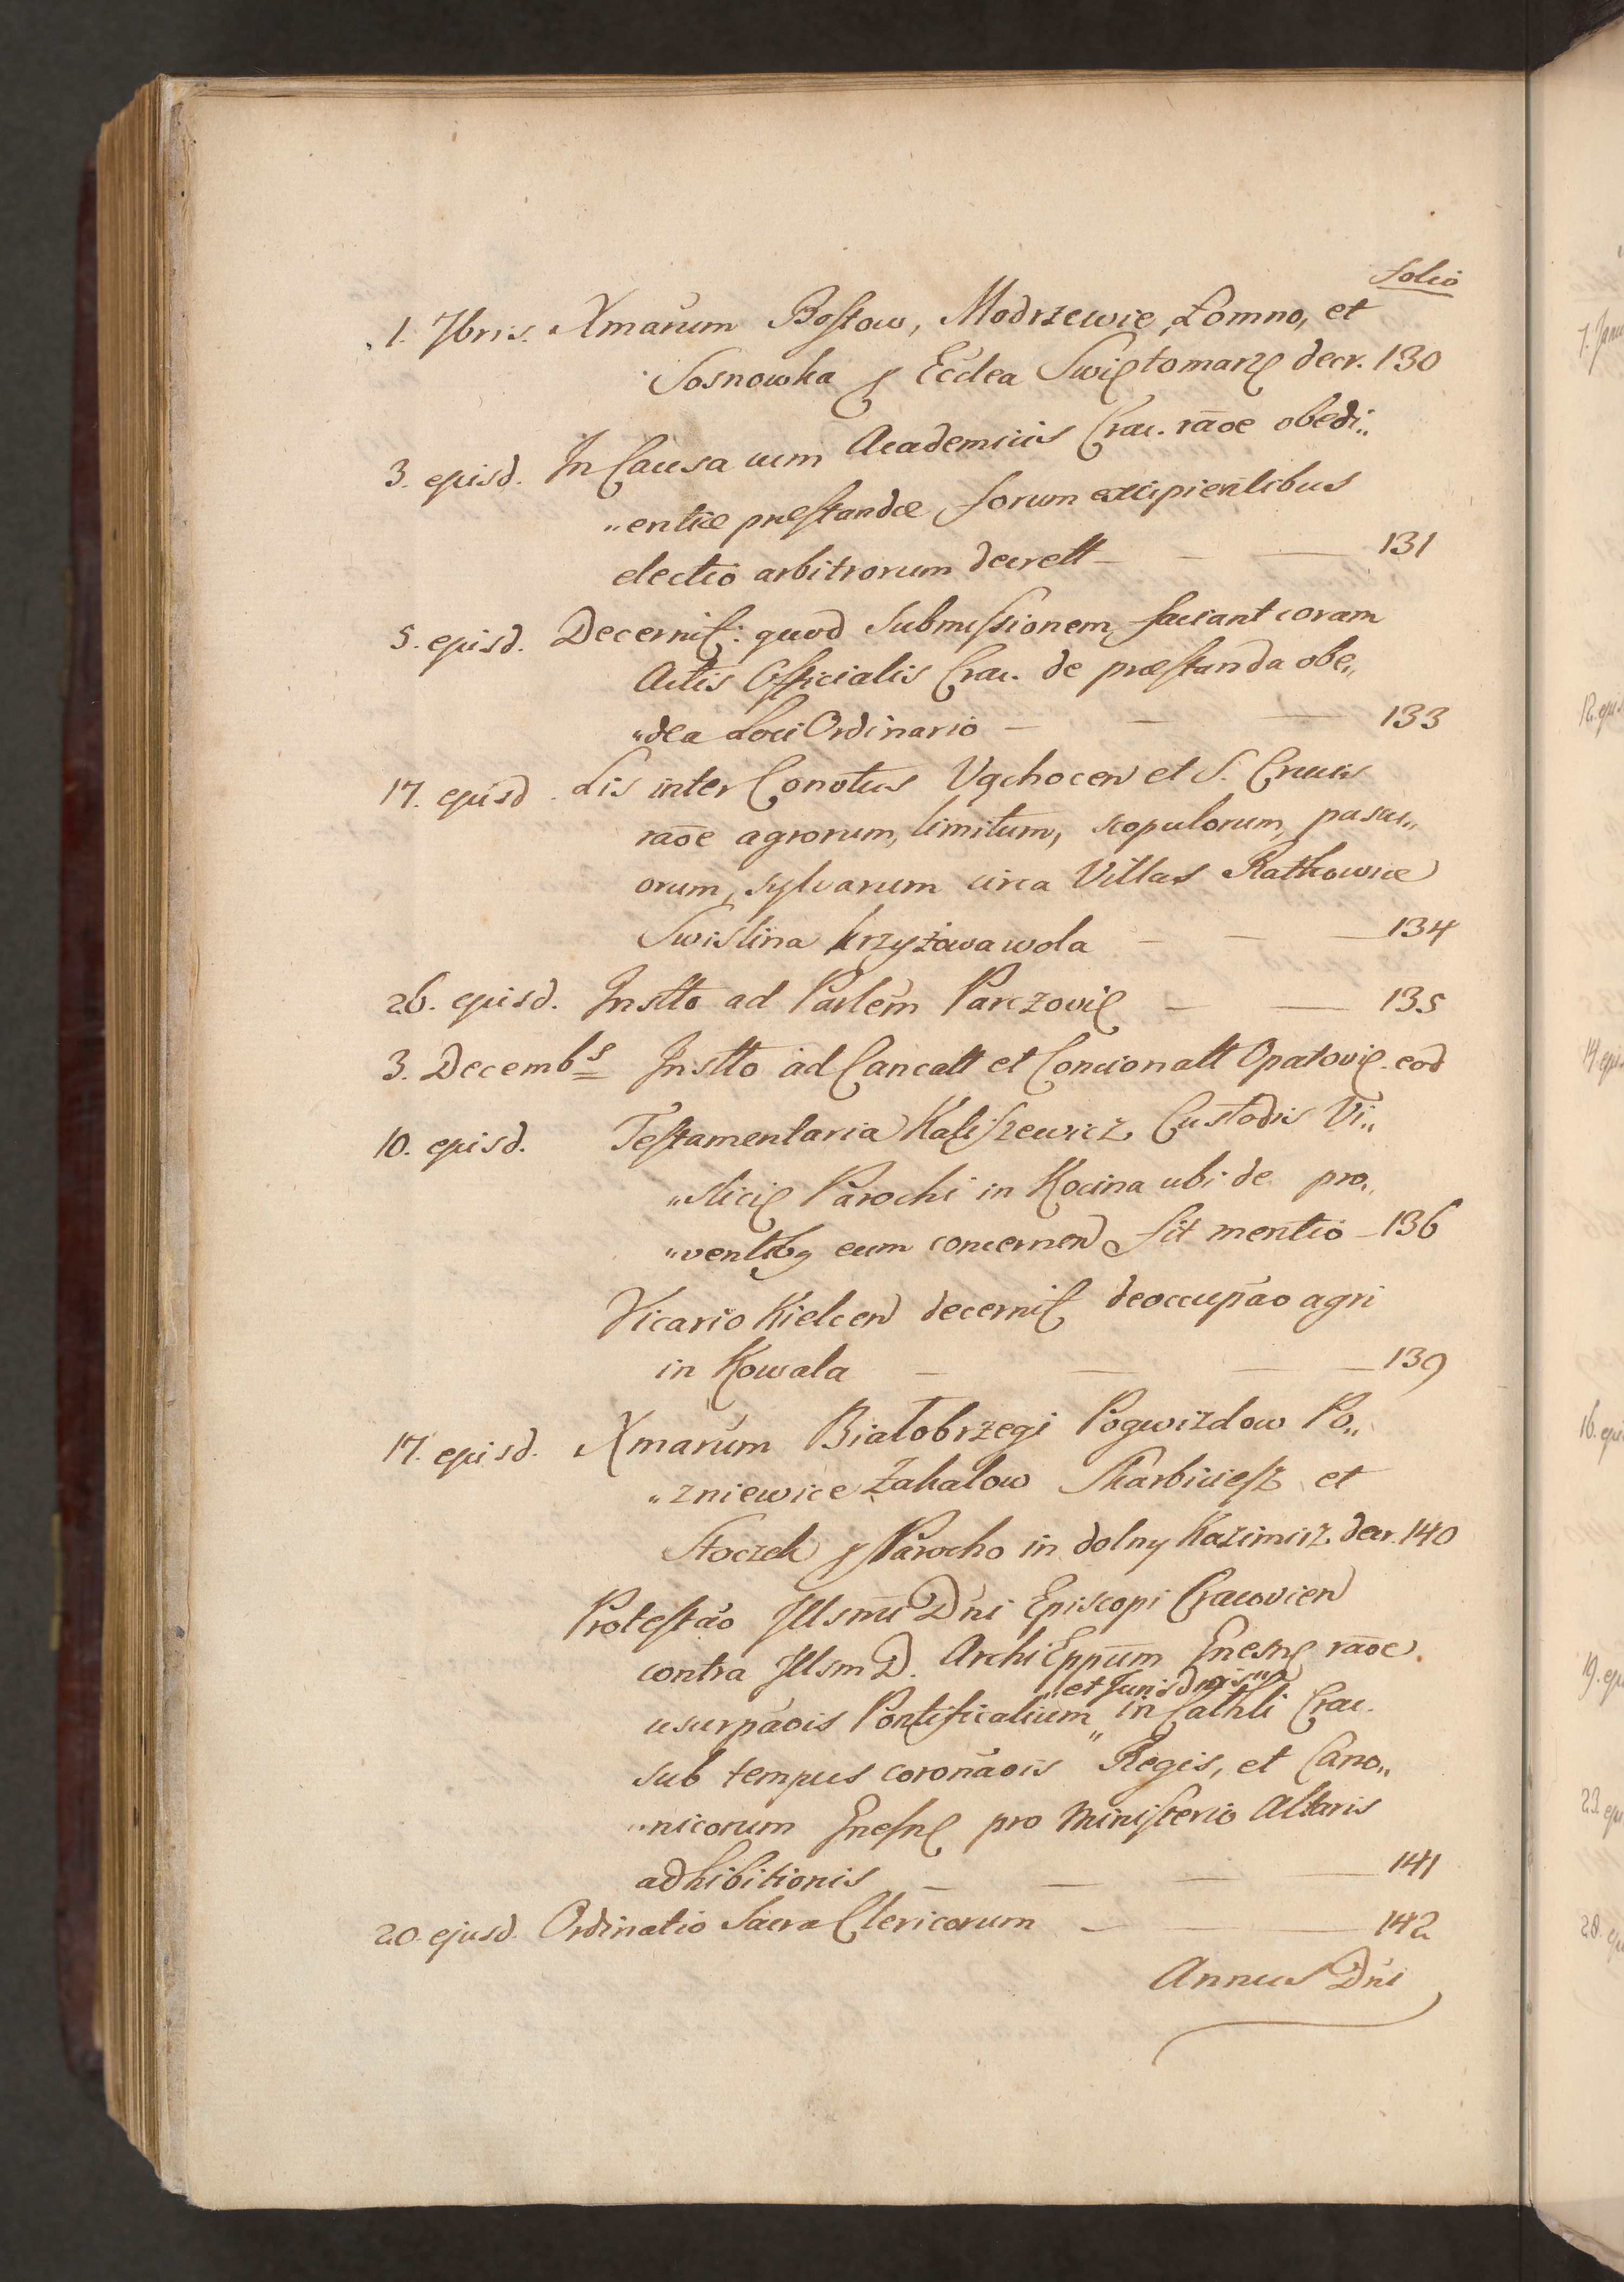 Folio
1. 7bris. Xmarum Bostow, Modrzewie, Łomno, et
Sosnowka p Ecclea Swiętomarz decr. 130
3. ejusd. In Causa cum Academicis Crac. raōe obedi„
„entiæ præstandæ forum excipientibus
electio arbitrorum decrett — — — 131
5. ejusd. Decernit: quod Submissionem faciant coram
Actis Officialis Crac. de præstanda obe„
„dea Loci Ordinario — — — 133
17. ejusd. Lis inter Conotus Vąchocen et S. Crucis
raōe agrorum, limitum, scopulorum, pascu„
orum, sylvarum circa Villas Ratkowice
Swislina krzyżowa wola — — — 134
26. ejusd. Instto ad Parlem Parczovi — — 135
3. Decembs Instto ad Cancalt et Concionalt Opatovi. eod
10. ejusd. Testamentaria Kaliszewicz Custodis Vi„
„slici Parochi in Kocina ubi de pro„
„ventibq eum concernen fit mentio — 136
Vicario Kielcen decernit deoccupāo agri
in Kowala — — — — 139
17. ejusd. Xmarum Białobrzegi Pogwizdow Po„
„zniewice Zakalow Skarbiciesz et
Stoczek p Parocho in dolny Kazimirz decr. 140
Protestāo Illsmi Dni Episcopi Cracovien
contra Illsm D. ArchiEppum Gnesn raōe
„et Jurisdnis„
usurpāois Pontificalium „ in Cathli Crac.
sub tempus coronāois Regis, et Cano„
„nicorum Gnesn pro Ministerio Altaris
adhibitionis — — — — 141
20. ejusd. Ordinatio Sacra Clericorum — — 142
Annus Dni